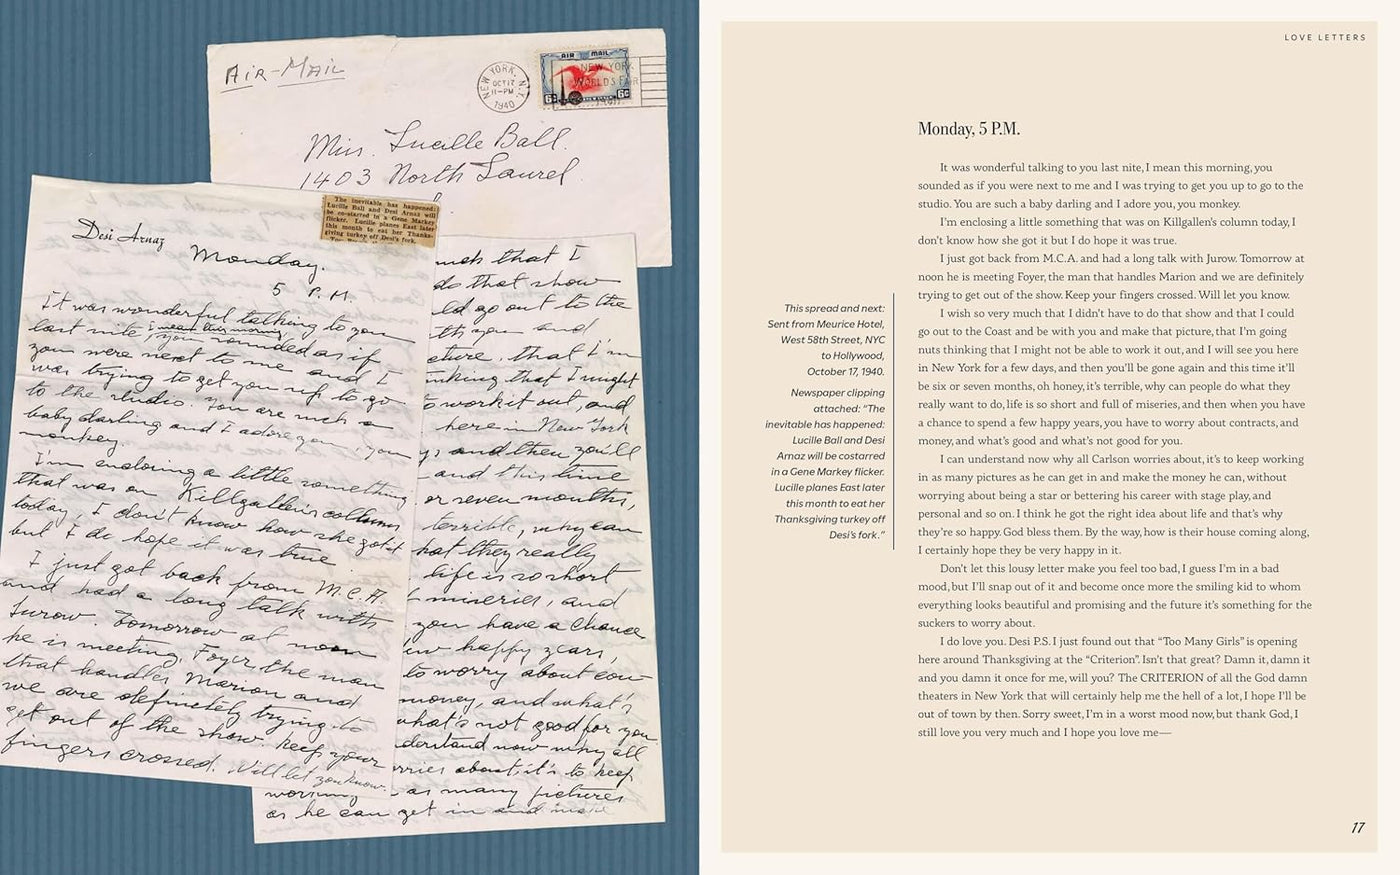 AIR-MAIL
NEW YORK, N.Y.
OCT 17
11-PM
1940
AIR MAIL
NEW YORK
WORLD'S FAIR
6¢ 6¢
Miss. Lucille Ball.
1403 North Laurel
The inevitable has happened:
Lucille Ball and Desi Arnaz will
be co-starred in a Gene Markey
flicker. Lucille planes East later
this month to eat her Thanks-
giving turkey off Desi's fork.
Desi Arnaz
Monday.
5 P.M.
It was wonderful talking to you
last nite, I mean this morning, you sounded as if
you were next to me and I
was trying to get you up to go
to the studio. You are such a
baby darling and I adore you, you
monkey.
I'm enclosing a little something
that was on Killgallen's column
today, I don't know how she got it
but I do hope it was true.
I just got back from M.C.A.
and had a long talk with
Jurow. Tomorrow at noon
he is meeting Foyer, the man
that handles Marion and
we are definitely trying to
get out of the show. Keep your
fingers crossed. Will let you know.
much that I
do that show
ld go out to the
th you and
cture, that I'm
nking that I might
to work it out, and
here in New York
ys and then you'll
and this time
or seven months,
terrible, why can
hat they really
life is so short
miseries, and
you have a chance
ew happy years,
to worry about con-
money, and what's
what's not good for you.
derstand now why all
rries about, it's to keep
working as many pictures
as he can get in and make
LOVE LETTERS
Monday, 5 P.M.
It was wonderful talking to you last nite, I mean this morning, you
sounded as if you were next to me and I was trying to get you up to go to the
studio. You are such a baby darling and I adore you, you monkey.
I'm enclosing a little something that was on Killgallen's column today, I
don't know how she got it but I do hope it was true.
I just got back from M.C.A. and had a long talk with Jurow. Tomorrow at
noon he is meeting Foyer, the man that handles Marion and we are definitely
trying to get out of the show. Keep your fingers crossed. Will let you know.
I wish so very much that I didn't have to do that show and that I could
go out to the Coast and be with you and make that picture, that I'm going
nuts thinking that I might not be able to work it out, and I will see you here
in New York for a few days, and then you'll be gone again and this time it'll
be six or seven months, oh honey, it's terrible, why can people do what they
really want to do, life is so short and full of miseries, and then when you have
a chance to spend a few happy years, you have to worry about contracts, and
money, and what's good and what's not good for you.
I can understand now why all Carlson worries about, it's to keep working
in as many pictures as he can get in and make the money he can, without
worrying about being a star or bettering his career with stage play, and
personal and so on. I think he got the right idea about life and that's why
they're so happy. God bless them. By the way, how is their house coming along,
I certainly hope they be very happy in it.
Don't let this lousy letter make you feel too bad, I guess I'm in a bad
mood, but I'll snap out of it and become once more the smiling kid to whom
everything looks beautiful and promising and the future it's something for the
suckers to worry about.
I do love you. Desi P.S. I just found out that “Too Many Girls” is opening
here around Thanksgiving at the “Criterion”. Isn't that great? Damn it, damn it
and you damn it once for me, will you? The CRITERION of all the God damn
theaters in New York that will certainly help me the hell of a lot, I hope I'll be
out of town by then. Sorry sweet, I'm in a worst mood now, but thank God, I
still love you very much and I hope you love me—
This spread and next:
Sent from Meurice Hotel,
West 58th Street, NYC
to Hollywood,
October 17, 1940.
Newspaper clipping
attached: “The
inevitable has happened:
Lucille Ball and Desi
Arnaz will be costarred
in a Gene Markey flicker.
Lucille planes East later
this month to eat her
Thanksgiving turkey off
Desi's fork.”
17